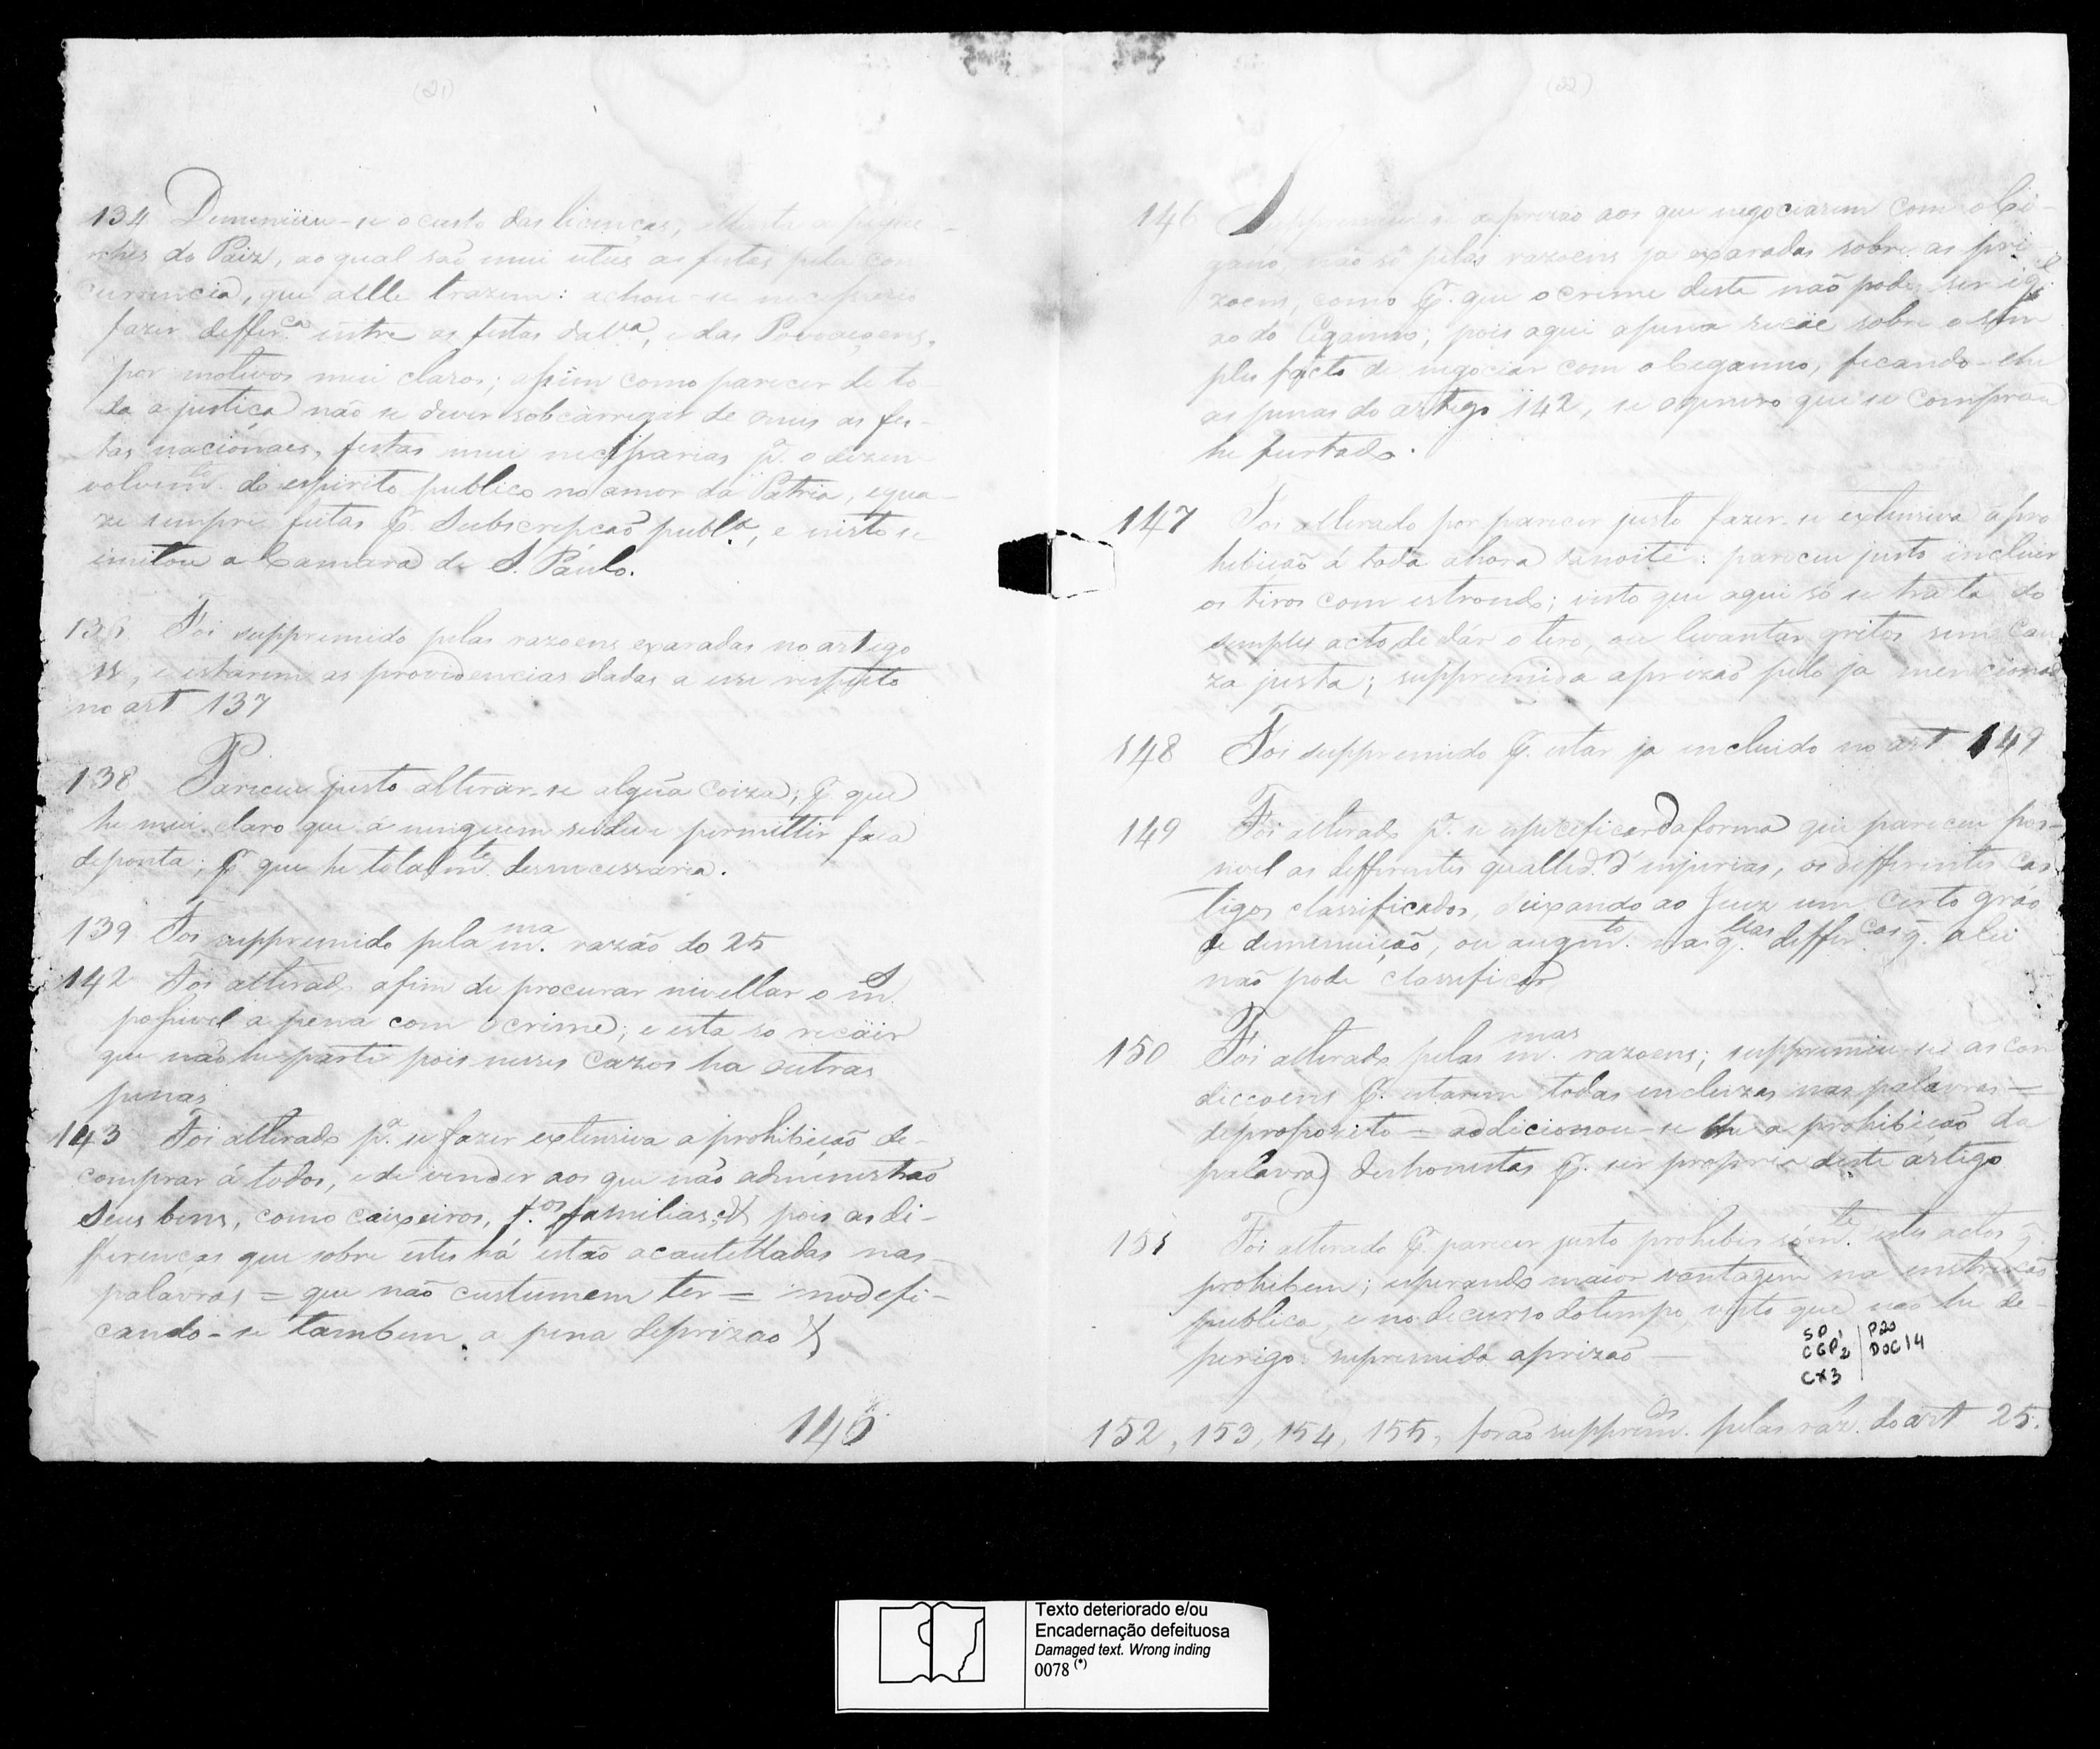 (21)
134 Demenuiu-se o custo das licenças, attenta a pique-
nhes do Paiz, ao qual são mui uteis as festas pela con
currencia, que a elle trazem: achou-se necessario
fazer differ.ça entre as festas da V.a, e das Povoaçoens,
por motivos mui claros; assim como parecer de to-
da a justiça não se dever sobcarregar de onus as fes-
tas nacionaes, festas mui necessarias p.a o dezen
volvim.to do espirito publico no amor da Patria, e qua-
ze sempre feitas p.r Subscripção publ.a, e nisto se
imitou a Camara de S. Paulo.
136 Foi suppremido pelas razoens exaradas no artigo
25, e estarem as providencias dadas a esse respeito
no art 137
138 Pareceu justo alterar-se algũa coiza; p.r que
he mui claro que á ninguem se deve permittir faca
de ponta; p.r que he totalm.te desnecessaria.
139 Foi suppremido pela m.ma razão do 25
142 Foi alterado afim de procurar nivellar o m.s
possivel a pena com o crime; e esta só recäir
que não he parte pois nesses cazos ha outras
penas
143 Foi alterado p.a se fazer extensiva a prohibição de-
comprar á todos, e de vender aos que não administrão
Seus bens, como caixeiros, f.os familias, & pois as di-
ferenças que sobre estes há estão acautelladas nas
palavras = que não custumem ter = modefi-
cando-se tambem a pena de prizao &
146
(22)
146 Suppremiu-se a prizão aos que negociarem com o Ci-
gano, não só pelas razoens ja exaradas sobre as pri
zoens, como p.r que o crime deste não pode ser igl
ao do Ciganno; pois aqui a pena recäe sobre o sim
ples facto de negociar com o Ciganno, ficando-lhe
as penas do artigo 142, se o genero que se comprou
he furtado.
147 Foi alterado por parecer justo fazer-se extensiva a pro
hibição á toda a hora da noite: pareceu justo incluir
os tiros com estrondo; visto que aqui só se trata do
simples acto de dár o tiro, ou levantar gritos sem cau
za justa; suppremida a prizão pelo ja mencionado
148 Foi suppremido p.r estar ja incluido no art 149
149 Foi alterado p.a se especificar da forma que pareceu pos-
sivel as differentes quallid.es d'injurias, os differentes cas
tigos classificados, deixando ao Juiz um certo gráo
de demenuição, ou augm.to naq.llas differ.ças q. a lei
não pode classificar
150 Foi alterado pelas m.mas razoens; suppremiu-se as con
diccoens p.r estarem todas incluzas nas palavras =
de proposito = addicionou-se lhe a prohibição da
palavra deshonestas p.r ser proprio deste artigo
151 Foi alterado p.r parecer justo prohibir sóm.te estes actos q.
prohibem; esperando maior vantagem na instrucção
publica, e no decurso do tempo, visto que não he de-
perigo: supremida a prizão —
SP1 P20
CGP2 DOC14
CX3
152, 153, 154, 155, forão supprem.dos pelas raz. do art 25.
Texto deteriorado e/ou
Encadernação defeituosa
Damaged text. Wrong inding
0078 (*)